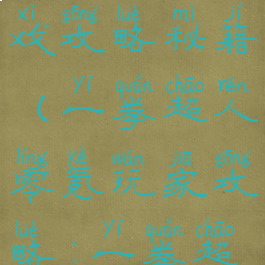 xì gōng lüè mì jí
戏攻略秘籍
Yī quán chāo rén
（一拳超人
líng kè wán jiā gōng
零氪玩家攻
lüè Yī quán chāo
略：一拳超